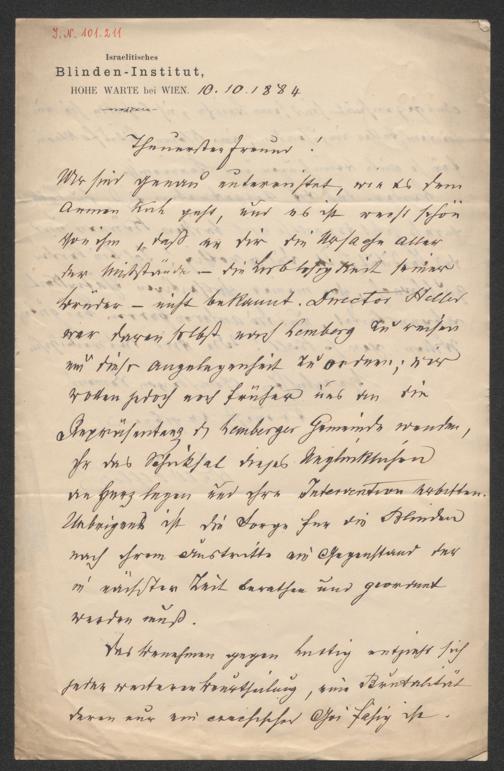 J. N. 101.211
Israelitisches
Blinden-Institut,
HOHE WARTE bei WIEN. 10.10.1884
Theuerster Freund!
Wir sind genau unterrichtet, wie es dem
armen Kuh geht, und es ist recht schön
von ihm, daß er dir die Ursache aller
der Mißstände – die Lieblosigkeit seiner
Brüder – nicht bekannt. Director Heller
war daran selbst nach Lemberg zu reisen
um diese Angelegenheit zu ordnen; wir
wollen jedoch noch früher uns an die
Repräsentanz der Lemberger Gemeinde wenden,
ihr das Schicksal dieses Unglücklichen
an's Herz legen und ihre Intervention erbitten.
Uebrigens ist die Sorge für die Blinden
nach ihrem Austritte ein Gegenstand der
in nächster Zeit berathen und geordnet
werden muß.
Das Benehmen gegen entzieht sich
jeder weiteren Beurtheilung, eine Brutalität
deren nur ein Goi fähig ist.